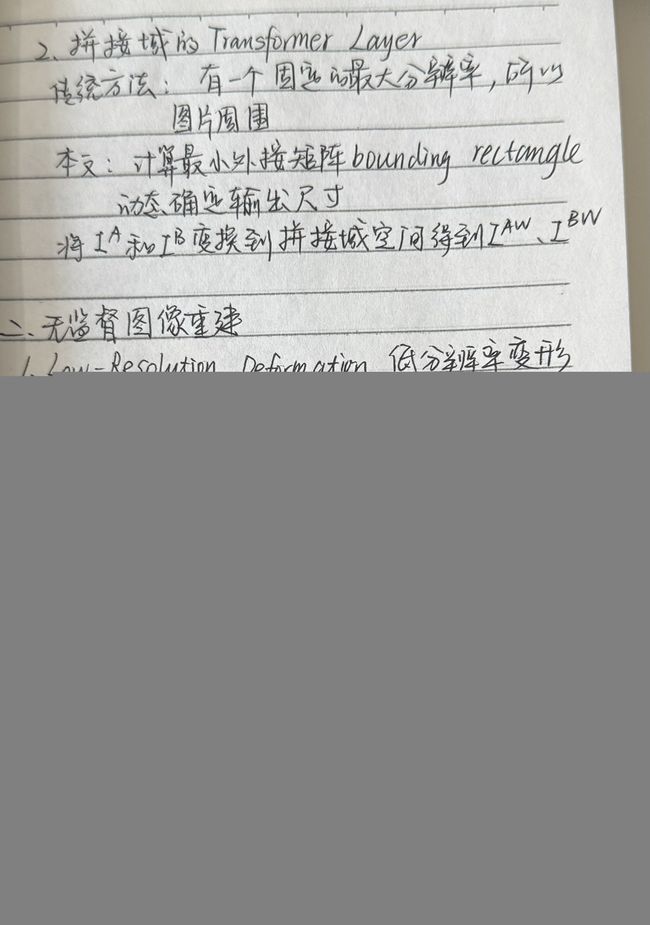 2. 拼接域的 Transformer Layer
传统方法: 有一个固定的最大分辨率, 所以
图片周围
本文: 计算最小外接矩阵 bounding rectangle
动态确定输出尺寸
将 I^A 和 I^B 变换到拼接域空间得到 I^AW、I^BW
二、无监督图像重建
1. Low-Resolution Deformation 低分辨率变形